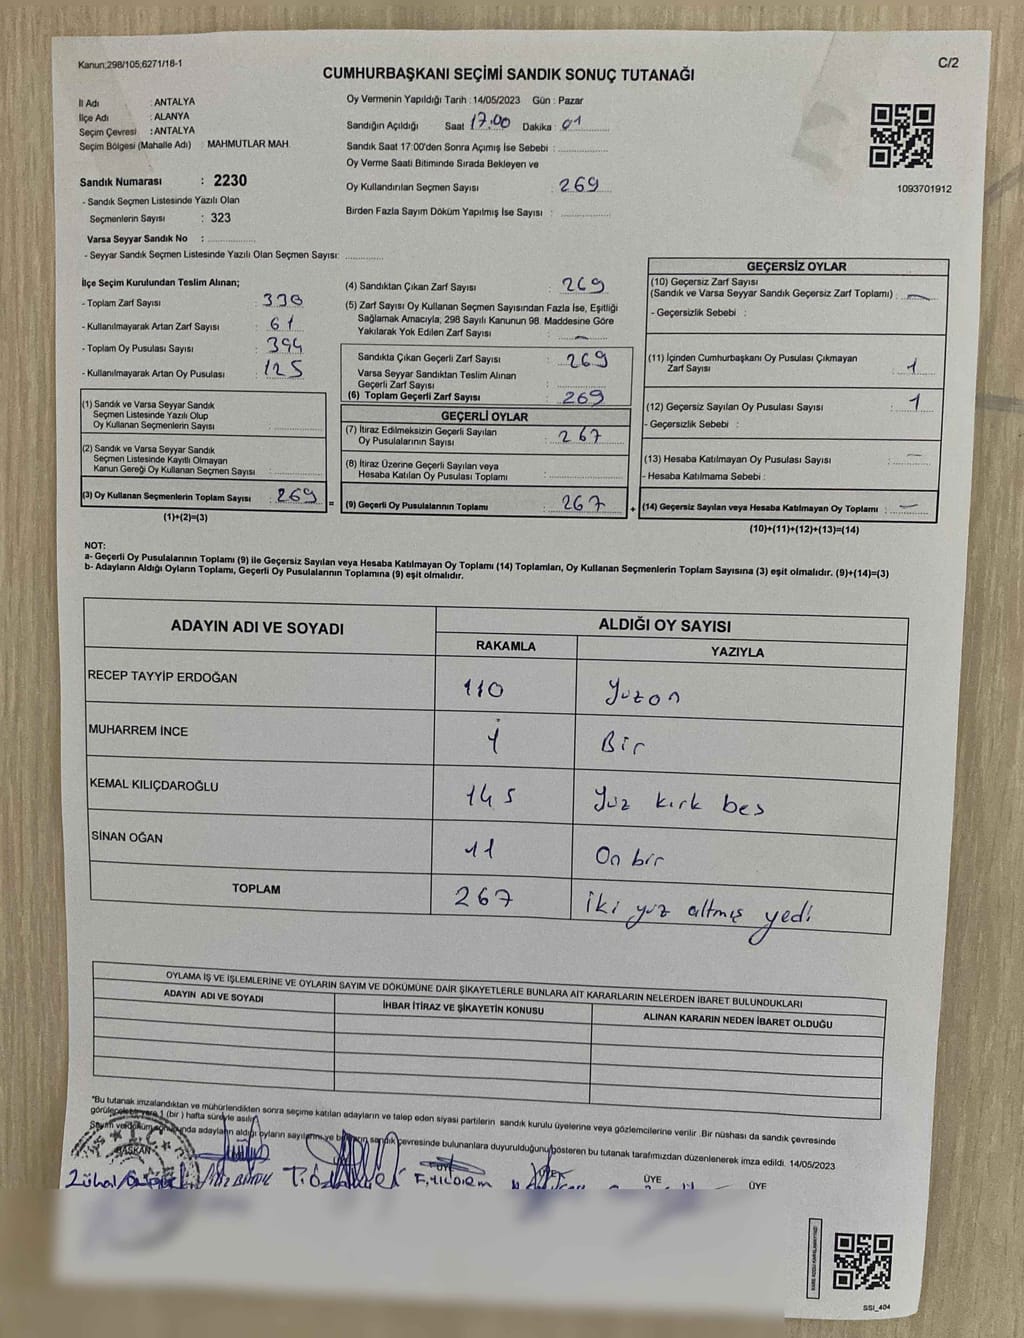 Kanun;298/105,6271/18-1
C/2
CUMHURBAŞKANI SEÇİMİ SANDIK SONUÇ TUTANAĞI
İl Adı : ANTALYA
İlçe Adı : ALANYA
Seçim Çevresi : ANTALYA
Seçim Bölgesi (Mahalle Adı) : MAHMUTLAR MAH.
Sandık Numarası : 2230
- Sandık Seçmen Listesinde Yazılı Olan
Seçmenlerin Sayısı : 323
Varsa Seyyar Sandık No :
- Seyyar Sandık Seçmen Listesinde Yazılı Olan Seçmen Sayısı:
Oy Vermenin Yapıldığı Tarih : 14/05/2023 Gün : Pazar
Sandığın Açıldığı Saat 17.00 Dakika : 01
Sandık Saat 17:00'den Sonra Açımış İse Sebebi :
Oy Verme Saati Bitiminde Sırada Bekleyen ve
Oy Kullandırılan Seçmen Sayısı : 269
Birden Fazla Sayım Döküm Yapılmış İse Sayısı :
1093701912
İlçe Seçim Kurulundan Teslim Alınan;
- Toplam Zarf Sayısı : 330
- Kullanılmayarak Artan Zarf Sayısı : 61
- Toplam Oy Pusulası Sayısı : 394
- Kullanılmayarak Artan Oy Pusulası : 125
(1) Sandık ve Varsa Seyyar Sandık
Seçmen Listesinde Yazılı Olup
Oy Kullanan Seçmenlerin Sayısı :
(2) Sandık ve Varsa Seyyar Sandık
Seçmen Listesinde Kayıtlı Olmayan
Kanun Gereği Oy Kullanan Seçmen Sayısı :
(3) Oy Kullanan Seçmenlerin Toplam Sayısı : 269 =
(1)+(2)=(3)
(4) Sandıktan Çıkan Zarf Sayısı : 269
(5) Zarf Sayısı Oy Kullanan Seçmen Sayısından Fazla İse, Eşitliği
Sağlamak Amacıyla, 298 Sayılı Kanunun 98. Maddesine Göre
Yakılarak Yok Edilen Zarf Sayısı : -
Sandıkta Çıkan Geçerli Zarf Sayısı : 269
Varsa Seyyar Sandıktan Teslim Alınan
Geçerli Zarf Sayısı :
(6) Toplam Geçerli Zarf Sayısı : 269
GEÇERLİ OYLAR
(7) İtiraz Edilmeksizin Geçerli Sayılan
Oy Pusulalarının Sayısı : 267
(8) İtiraz Üzerine Geçerli Sayılan veya
Hesaba Katılan Oy Pusulası Toplamı :
(9) Geçerli Oy Pusulalarının Toplamı : 267 +
GEÇERSİZ OYLAR
(10) Geçersiz Zarf Sayısı
(Sandık ve Varsa Seyyar Sandık Geçersiz Zarf Toplamı) : -
- Geçersizlik Sebebi :
(11) İçinden Cumhurbaşkanı Oy Pusulası Çıkmayan
Zarf Sayısı : 1
(12) Geçersiz Sayılan Oy Pusulası Sayısı : 1
- Geçersizlik Sebebi :
(13) Hesaba Katılmayan Oy Pusulası Sayısı : -
- Hesaba Katılmama Sebebi :
(14) Geçersiz Sayılan veya Hesaba Katılmayan Oy Toplamı : -
(10)+(11)+(12)+(13)=(14)
NOT:
a- Geçerli Oy Pusulalarının Toplamı (9) ile Geçersiz Sayılan veya Hesaba Katılmayan Oy Toplamı (14) Toplamları, Oy Kullanan Seçmenlerin Toplam Sayısına (3) eşit olmalıdır. (9)+(14)=(3)
b- Adayların Aldığı Oyların Toplamı, Geçerli Oy Pusulalarının Toplamına (9) eşit olmalıdır.
ADAYIN ADI VE SOYADI ALDIĞI OY SAYISI
RAKAMLA YAZIYLA
RECEP TAYYİP ERDOĞAN 110 Yüzon
MUHARREM İNCE 1 Bir
KEMAL KILIÇDAROĞLU 145 Yüz kırk beş
SİNAN OĞAN 11 On bir
TOPLAM 267 İki yüz altmış yedi
OYLAMA İŞ VE İŞLEMLERİNE VE OYLARIN SAYIM VE DÖKÜMÜNE DAİR ŞİKAYETLERLE BUNLARA AİT KARARLARIN NELERDEN İBARET BULUNDUKLARI
ADAYIN ADI VE SOYADI İHBAR İTİRAZ VE ŞİKAYETİN KONUSU ALINAN KARARIN NEDEN İBARET OLDUĞU
"Bu tutanak imzalandıktan ve mühürlendikten sonra seçime katılan adayların ve talep eden siyasi partilerin sandık kurulu üyelerine veya gözlemcilerine verilir .Bir nüshası da sandık çevresinde
görülecek bir yere 1 (bir ) hafta süreyle asılır.
Sayım ve döküm sonunda adayların aldığı oyların sayılarını ve bunların sandık çevresinde bulunanlara duyurulduğunu gösteren bu tutanak tarafımızdan düzenlenerek imza edildi. 14/05/2023
BAŞKAN ÜYE ÜYE
F. YILDIRIM
SSI_404